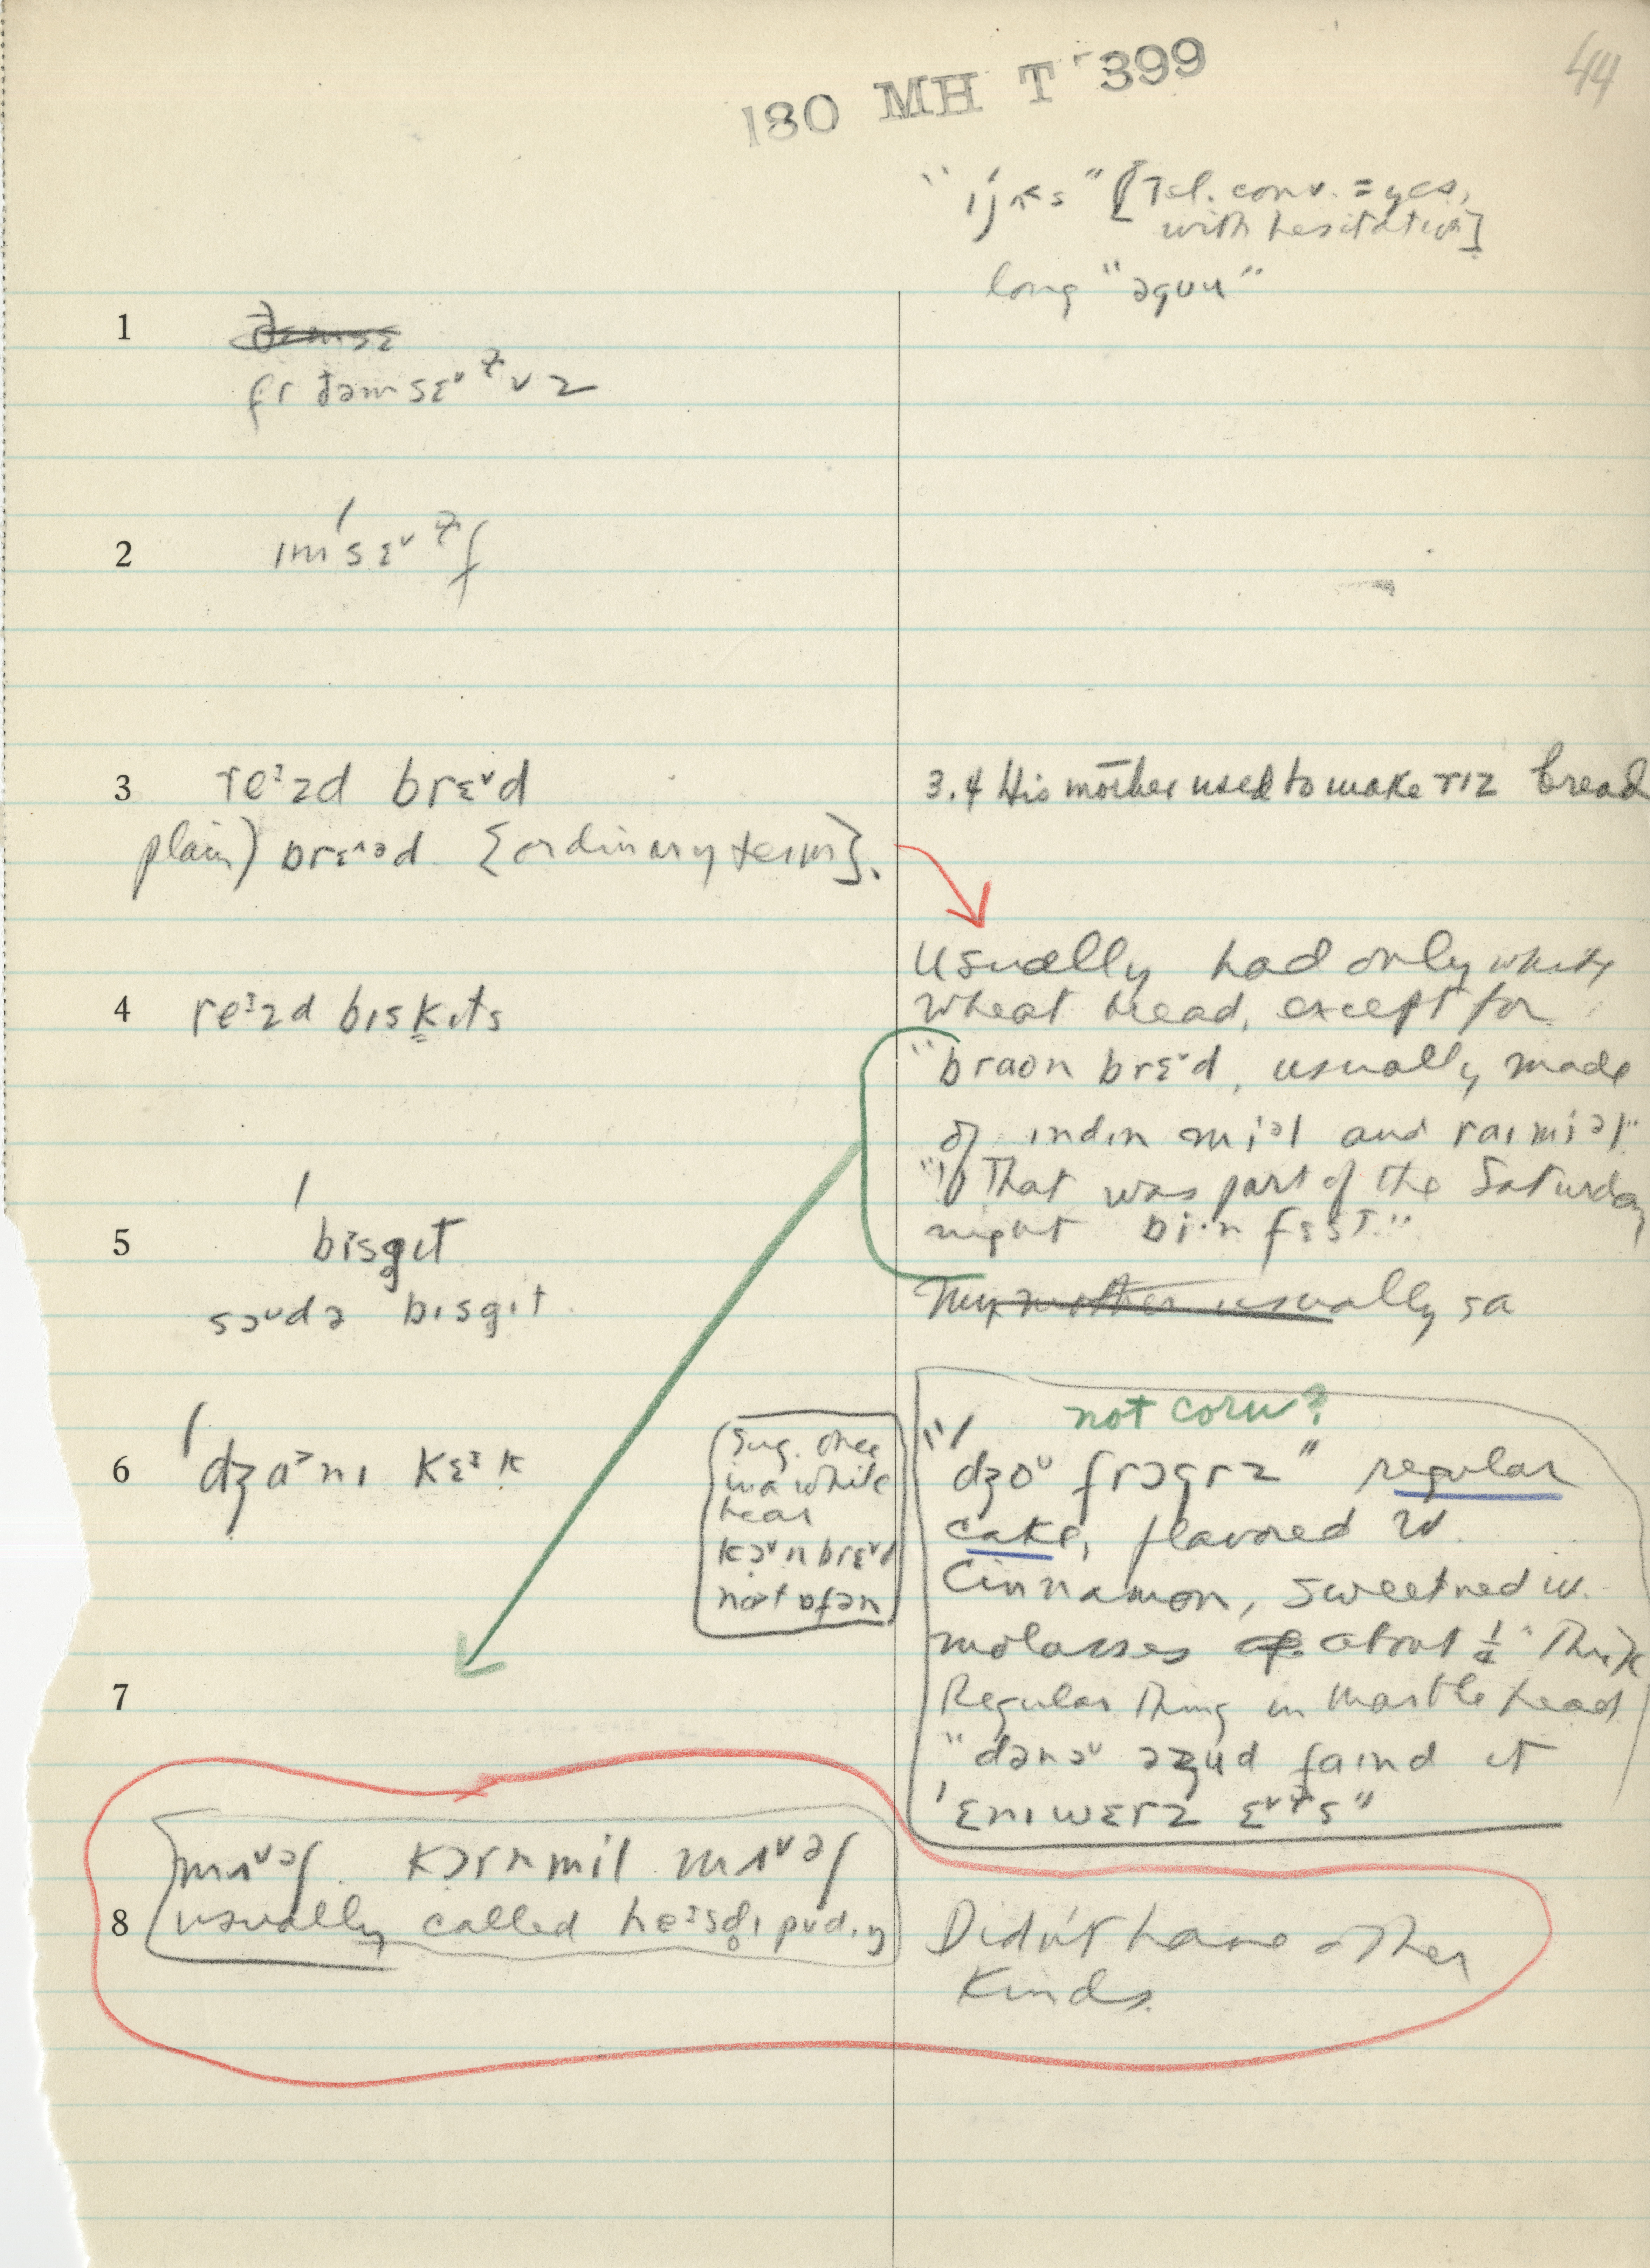 44
180 MH T 399
"ˈijʌɛs" [Tel. conv. = yes,
with hesitation]
long "əguu"
1
fr ðəmsɛᵛɫvz
2
ɪmˈsɛᵛɫf
3 reᶦzd brɛᵛd
plain) brɛ^əd {ordinary term}.
3.4 His mother used to make rɪz bread
Usually had only white
wheat bread, except for
4 reᶦzd bɪskɪts
"braʊn brɛᵛd, usually made
of ɪndɪn miᵊl and raɪmiəl"
"That was part of the Saturday
night bi·n fɛst."
5 ˈbɪsgɪt
soᵘdə bɪsgɪt
My mother usually sa
not corn?
6 ˈdʒaᵓnɪ kɛᶦk
Sug. once
in a while
hear
kɔᵛnbrɛᵛd
not ɒfən
"ˈdʒoᵘ frɔgrz" regular
cake, flavored w.
Cinnamon, sweetned w.
molasses about ½" Thick
Regular Thing in Marblehead
"dənoᵘ əzud faɪnd ɪt
ˈɛnɪwɛrz ɛᵛɫs"
7
8
mʌᵛəʃ kɔrnmil mʌᵛəʃ
usually called heᶦsd̥ɪ pʊdɪŋ
Didn't have other
Kinds.